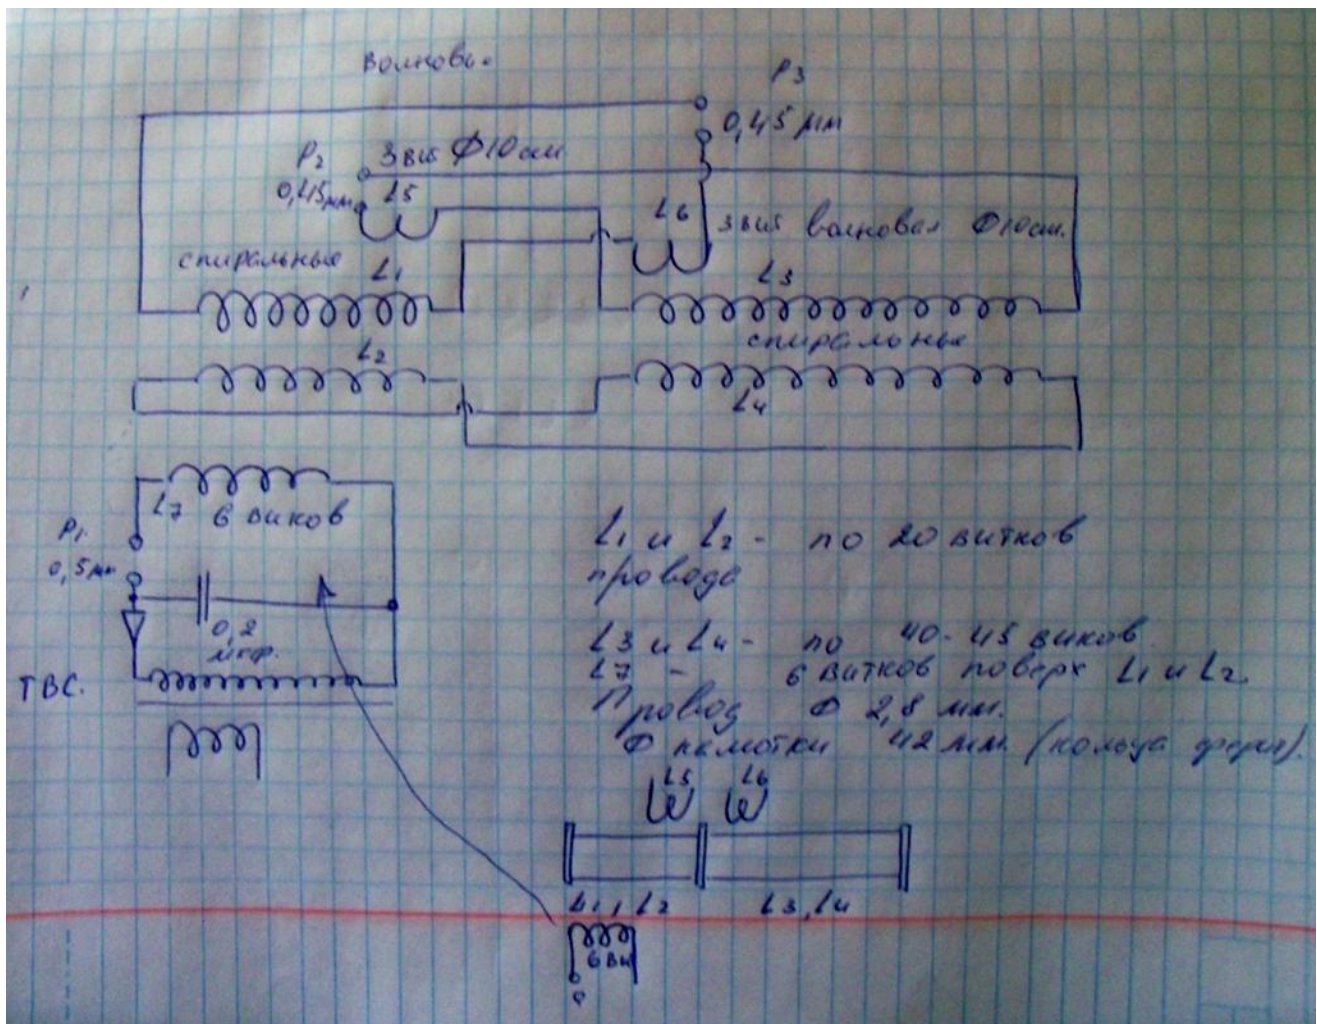 Волновы.
P3
0,45 мм
P2
3 вит Ф10 см
0,45 мм
L5
L6
3 вит волновая Ф10 см.
спиральные
L1
L3
спиральные
L2
L4
L7
6 виков
P1
0,5 мм
0,2
мкф.
ТВС.
L1 и L2 - по 20 витков
провода
L3 и L4 - по 40-45 виков
L7 - 6 витков поверх L1 и L2.
Провод Ф 2,8 мм.
Ф намотки 42 мм. (кольца
L5
L6
L1, L2
L3, L4
6 ви